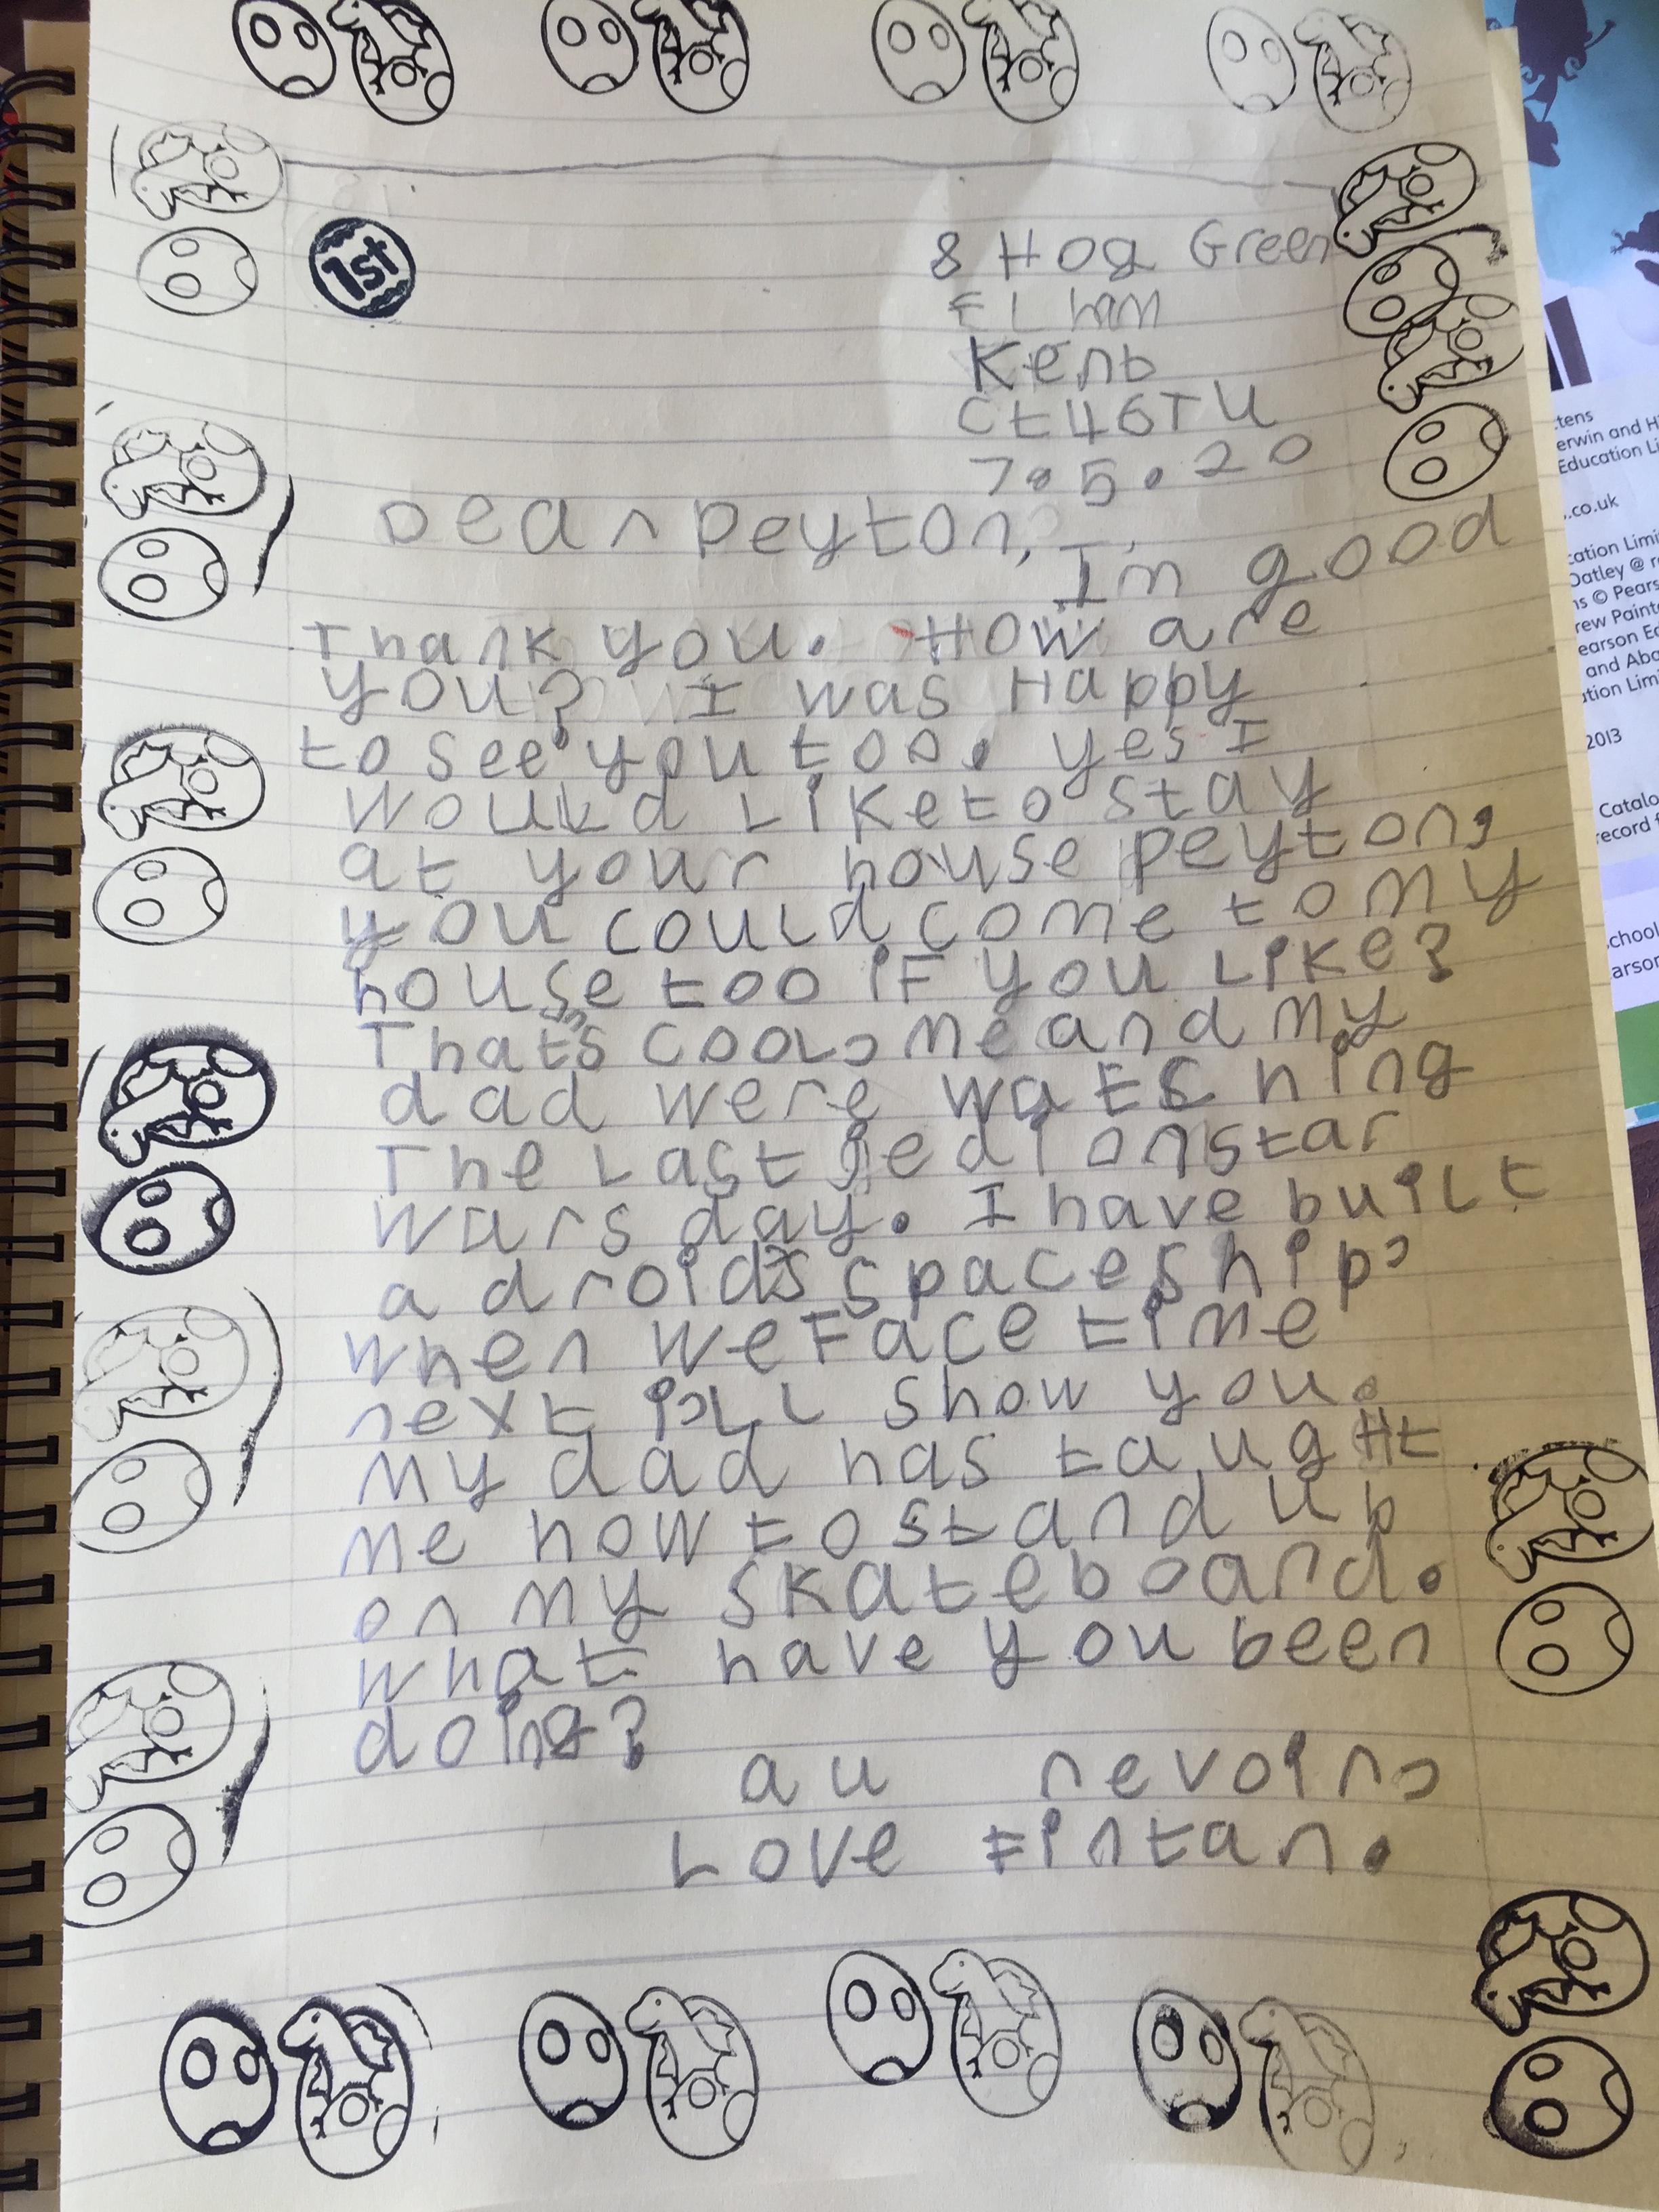 1st
8 Hog Green
ELham
Kent
Ct46TU
7.5.20
Dear peyton,
I'm good
Thank you. How are
you? I was Happy
to see you too. yes I
Would Like to stay
at your house peyton,
you could come to my
house too iF you Like?
That's cooL, me and my
dad were watching
The Last jedi on star
wars day. I have buiLt
a droids spaceship,
when we Face time
next i'LL show you.
My dad has taugHt
me how to stand up
on my skateboard.
what have you been
doing?
au revoir,
Love Fintan.
tens
erwin and H
Education Li
.co.uk
cation Limi
Oatley @ r
ns © Pears
rew Paint
earson Ed
and Aba
tion Lim
2013
Catalo
record f
chool
arson